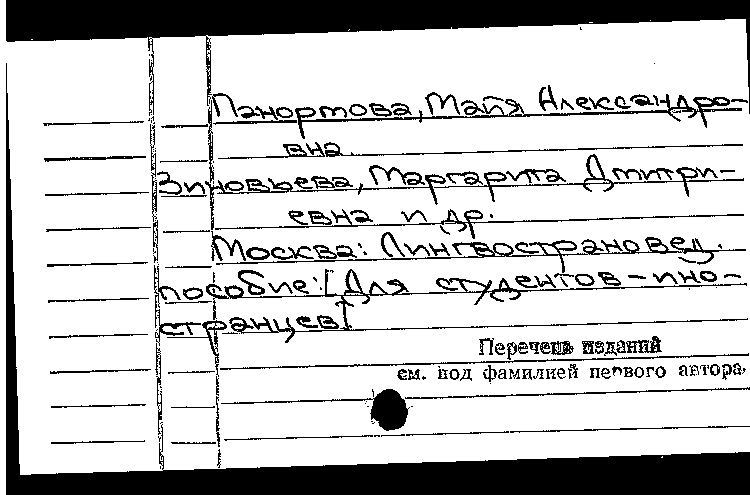 Панортова, Майя Александро-
вна.
Зиновьева, Маргарита Дмитри-
евна и др.
Москва: Лингвострановед.
пособие: [Для студентов-ино-
странцев]
Перечень изданий
см. под фамилией первого автора.